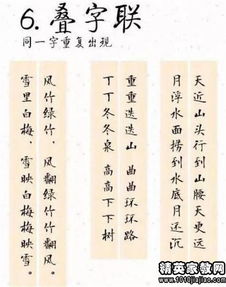 6. 叠字联
同一字重复出现
天近山头行到山腰天更远
月浮水面捞到水底月还沉
重重迭迭山 曲曲环环路
丁丁冬冬泉 高高下下树
风竹绿竹，风翻绿竹竹翻风。
雪里白梅，雪映白梅梅映雪。
精英家教网
www.1010jiajiao.com